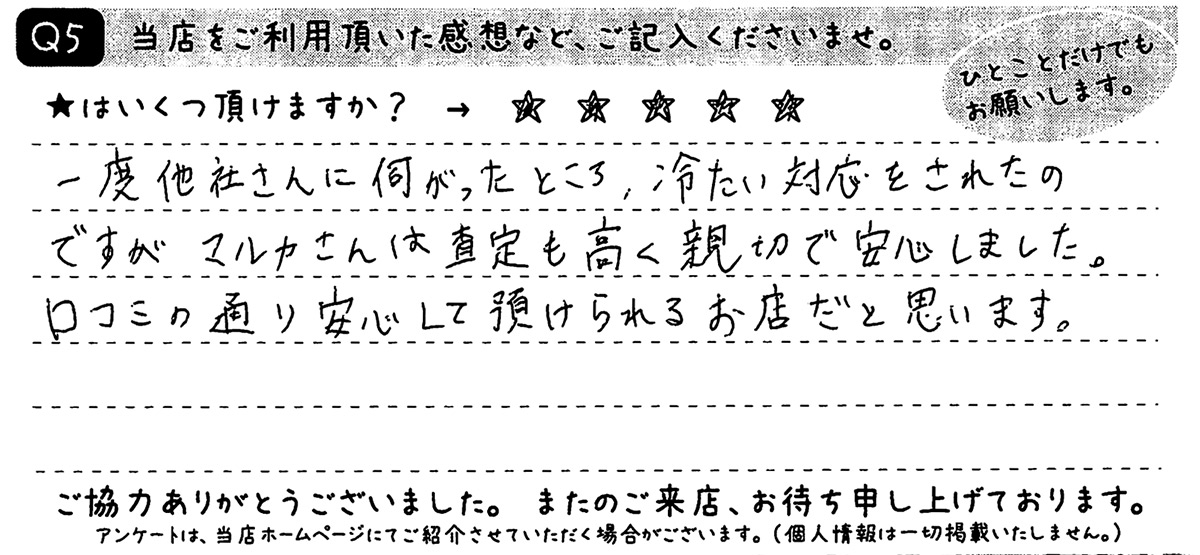 Q5 当店をご利用頂いた感想など、ご記入くださいませ。
ひとことだけでも
お願いします。
★はいくつ頂けますか？ → ☆ ☆ ☆ ☆ ☆
一度他社さんに伺がったところ，冷たい対応をされたの
ですが マルカさんは査定も高く親切で安心しました。
口コミの通り安心して預けられるお店だと思います。
ご協力ありがとうございました。 またのご来店、お待ち申し上げております。
アンケートは、当店ホームページにてご紹介させていただく場合がございます。（個人情報は一切掲載いたしません。）